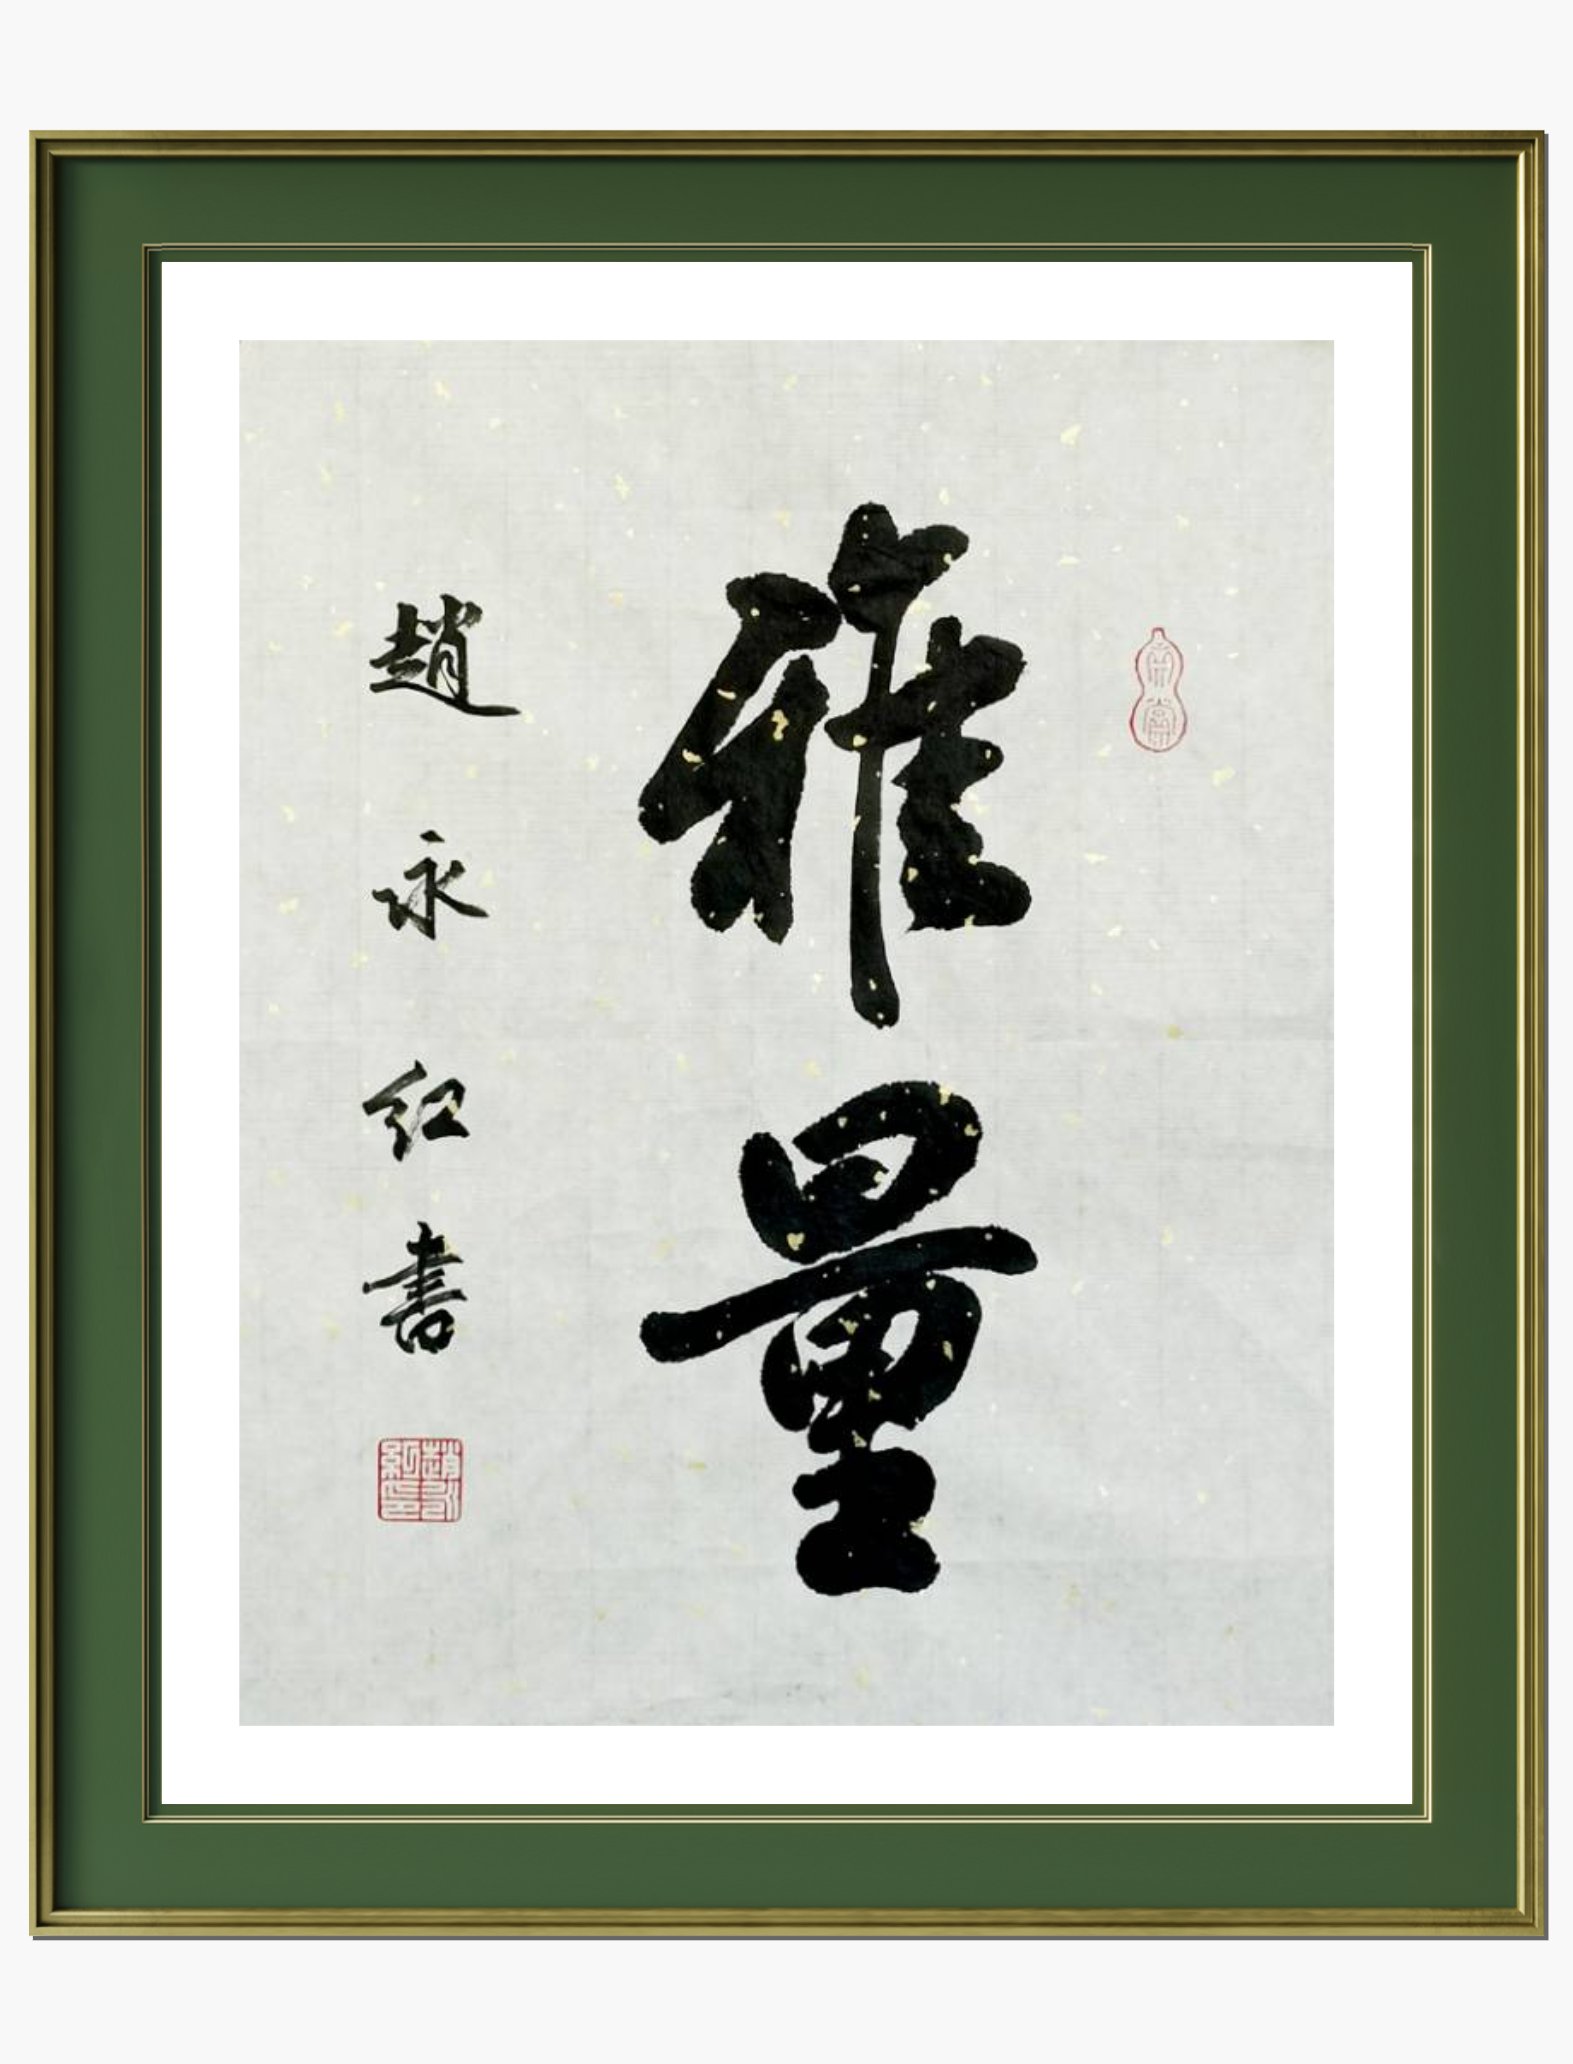 雅量
趙永红書
趙永紅印